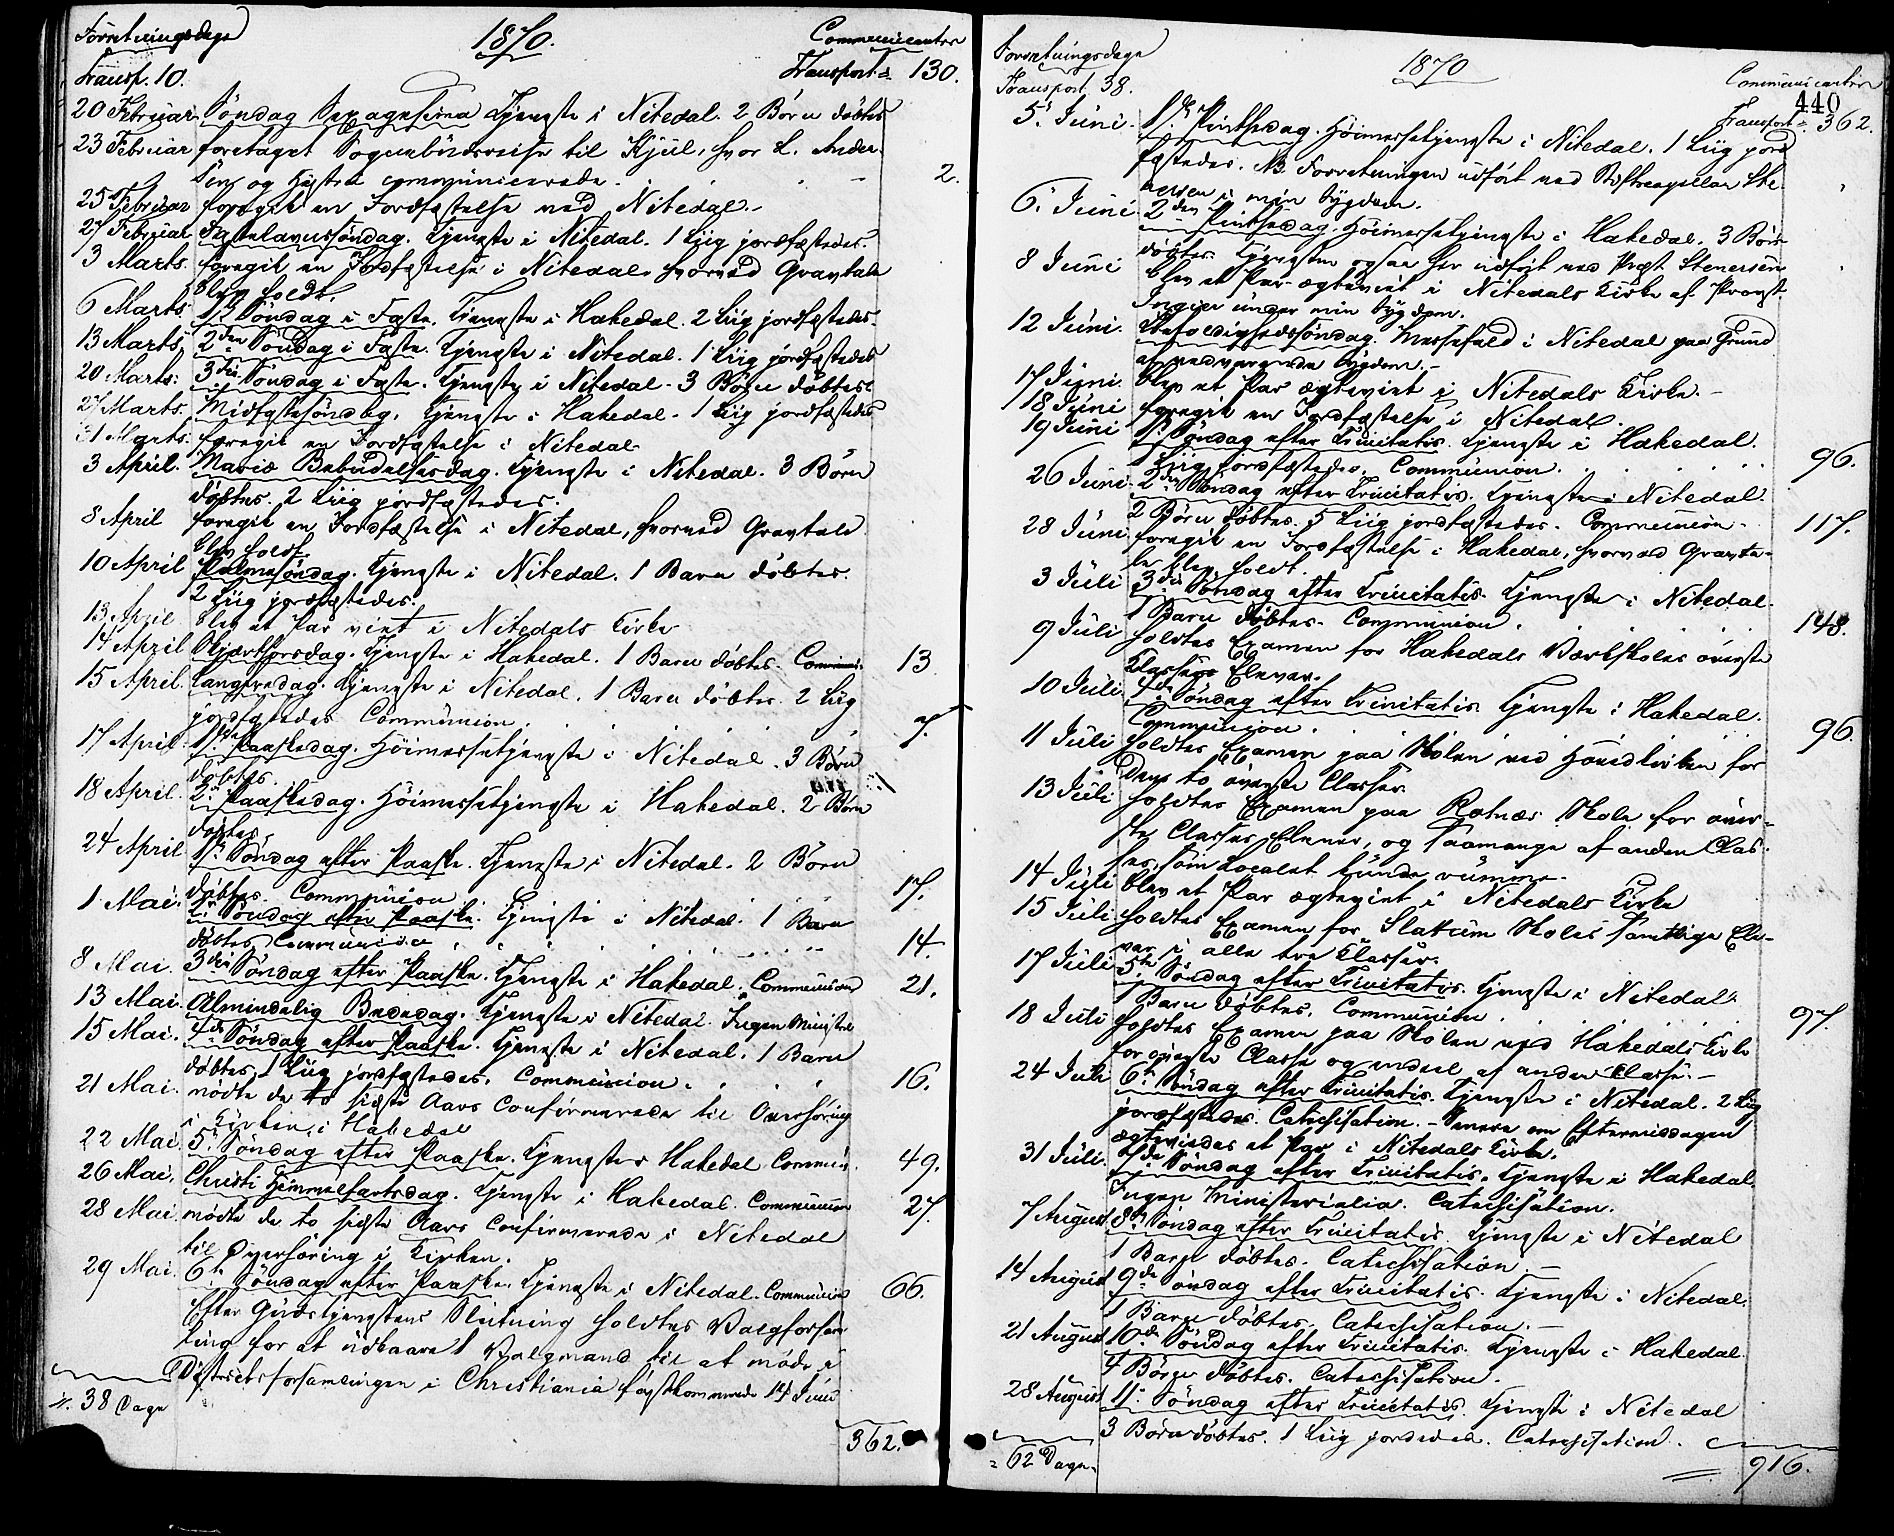 Forretningsdage 1870. Communicanter
Transp. 10. Transport = 130.
20 Februar Söndag Sexagesima Tjeneste i Nitedal. 2 Börn döbtes
23 Februar foretaget Sognebüdsreise til Kjül, hvor L. Ander-
sen og Hüstru communicerede. 2.
25 Februar foregik en Jordfæstelse ved Nitedal.
27 Februar Fastelavnssöndag. Tjeneste i Nitedal. 1 Liig jordfæstedes.
3 Marts. foregik en Jordfæstelse i Nitedal, hvorved Gravtale
blev holdt.
6 Marts 1ste Söndag i Faste. Tjeneste i Hakedal. 2 Liig jordfæstedes.
13 Marts 2den Söndag i Faste. Tjeneste i Nitedal. 1 Liig jordfæstedes
20 Marts: 3die Söndag i Faste. Tjeneste i Nitedal. 3 Börn döbtes.
27 Marts. Midfastesöndag. Tjeneste i Hakedal. 1 Liig jordfæstedes
31 Marts. foregik en Jordfæstelse i Nitedal
3 April. Mariæ Bebudelsesdag. Tjeneste i Nitedal. 3 Börn
döbtes. 2 Liig jordfæstedes.
8 April foregik en Jordfæstelse i Nitedal, hvorved Gravtale
blev holdt.
10 April Palmesöndag. Tjeneste i Nitedal. 1 Barn döbtes.
2 Liig jordfæstedes.
13 April blev et Par viet i Nitedals Kirke
14 April Skjærthorsdag. Tjeneste i Hakedal. 1 Barn döbtes. Commun: 13
15 April. Langfredag. Tjeneste i Nitedal. 1 Barn döbtes. 2 Liig
jordfæstedes Communion. 7.
17 April. 1ste Paaskedag. Höimessetjeneste i Nitedal. 3 Börn
döbtes.
18 April. 2. Paaskedag. Höimessetjeneste i Hakedal. 2 Börn
döbtes.
24 April 1ste Söndag efter Paaske. Tjeneste i Nitedal. 2 Börn
döbtes. Communion 17.
1 Mai. 2. Söndag efter Paaske. Tjeneste i Nitedal. 1 Barn
döbtes Communion 14.
8 Mai. 3die Söndag efter Paaske. Tjeneste i Hakedal. Communion 21.
13 Mai. Almindelig Bededag. Tjeneste i Nitedal. Ingen Ministe
15 Mai. 4de Söndag efter Paaske. Tjeneste i Nitedal. 1 Barn
döbtes, 1 Liig jordfæstedes. Communion. 16.
21 Mai. mödte de to sidste Aars Confirmerede til Overhöring
i Kirken i Hakedal
22 Mai 5. Söndag efter Paaske. Tjeneste i Hakedal Commün. 49.
26 Mai. Christi Himmelfartsdag. Tjeneste i Hakedal. Communion 27.
28 Mai. mödte de to sidste Aars Confirmerede i Nitedal
til Overhöring i Kirken.
29 Mai. 6te Söndag efter Paaske. Tjeneste i Nitedal. Communion 66.
Efter Gudstjenestens Slutning holdtes Valgforsam
ling for at üdkaare 1 Valgmand til at möde i
Districtsforsamlingen i Christiania förstkommende 14 Juni
38 Dage
362.
Forretningsdage 1870 Communicanter
Transport 38. 440
Transport = 362.
5. Juni. 1ste Pintsedag. Höimessetjeneste i Nitedal. 1 Liig jord
fæstedes. NB. Forretningen udfört ved Stiftscapellan Ste-
nersen i min Sygdom.
6. Juni 2den Pintsedag. Höimessetjeneste i Hakedal. 3 Börn
döbtes. Tjenesten ogsaa her udfört ved Præst Stenersen
8 Juni blev et Par ægteviet i Nitedals Kirke af Provst
under min Sygdom.
12 Juni. Trefoldighedssöndag. Messefald i Nitedal paa Grund
af vedvarende Sygdom.
17 Juni. blev et Par ægteviet i Nitedals Kirke.
18 Juni foregik en Jordfæstelse i Nitedal.
19 Juni 1ste Söndag efter Trinitatis. Tjeneste i Hakedal.
Liig jordfæstedes. Communion. 96.
26 Juni. 2den Söndag efter Trinitatis. Tjeneste i Nitedal.
2 Börn döbtes. 5 Liig jordfæstedes. Communion. 117.
28 Juni foregik en Jordfæstelse i Hakedal, hvorved Gravta-
le blev holdt.
3 Juli 3die Söndag efter Trinitatis. Tjeneste i Nitedal.
1 Barn döbtes. Communion. 148.
9 Juli holdtes Examen for Hakedals Værkskoles överste
Classes Elever.
10 Juli 4de Söndag efter Trinitatis. Tjeneste i Hakedal.
Communion. 96.
11 Juli holdtes Examen paa Skolen ved for
Dens to överste Classer.
13 Juli holdtes Examen paa Rotnæs Skole for över-
ste Classes Elever, og saamange af anden Clas-
ses, som Localet kunde rümme.
14 Juli blev et Par ægteviet i Nitedals Kirke
15 Juli holdtes Examen for Slattüm Skoles samtlige Ele-
ver i alle tre Classer.
17 Juli 5te Söndag efter Trinitatis. Tjeneste i Nitedal.
1 Barn döbtes. Communion. 97.
18 Juli holdtes Examen paa Skolen ved Hakedals Kirke
for överste Classe og endeel af anden Classe.
24 Juli 6. Söndag efter Trinitatis. Tjeneste i Nitedal. 2 Liig
jordfæstedes. Catechisation. – Senere om Eftermiddagen
ægteviedes et Par i Nitedals Kirke.
31 Juli. 7de Söndag efter Trinitatis. Tjeneste i Hakedal.
Ingen Ministerialia. Catechisation.
7 August 8. Söndag efter Trinitatis. Tjeneste i Nitedal
1 Barn döbtes. Catechisation.
14 August 9de Söndag efter Trinitatis. Tjeneste i Nitedal.
1 Barn döbtes. Catechisation.
21 August 10de Söndag efter Trinitatis. Tjeneste i Hakedal.
4 Börn döbtes. Catechisation.
28 August 11. Söndag efter Trinitatis. Tjeneste i Nitedal
3 Börn döbtes. 1 Liig Catechisation.
= 62 Dage. 916.